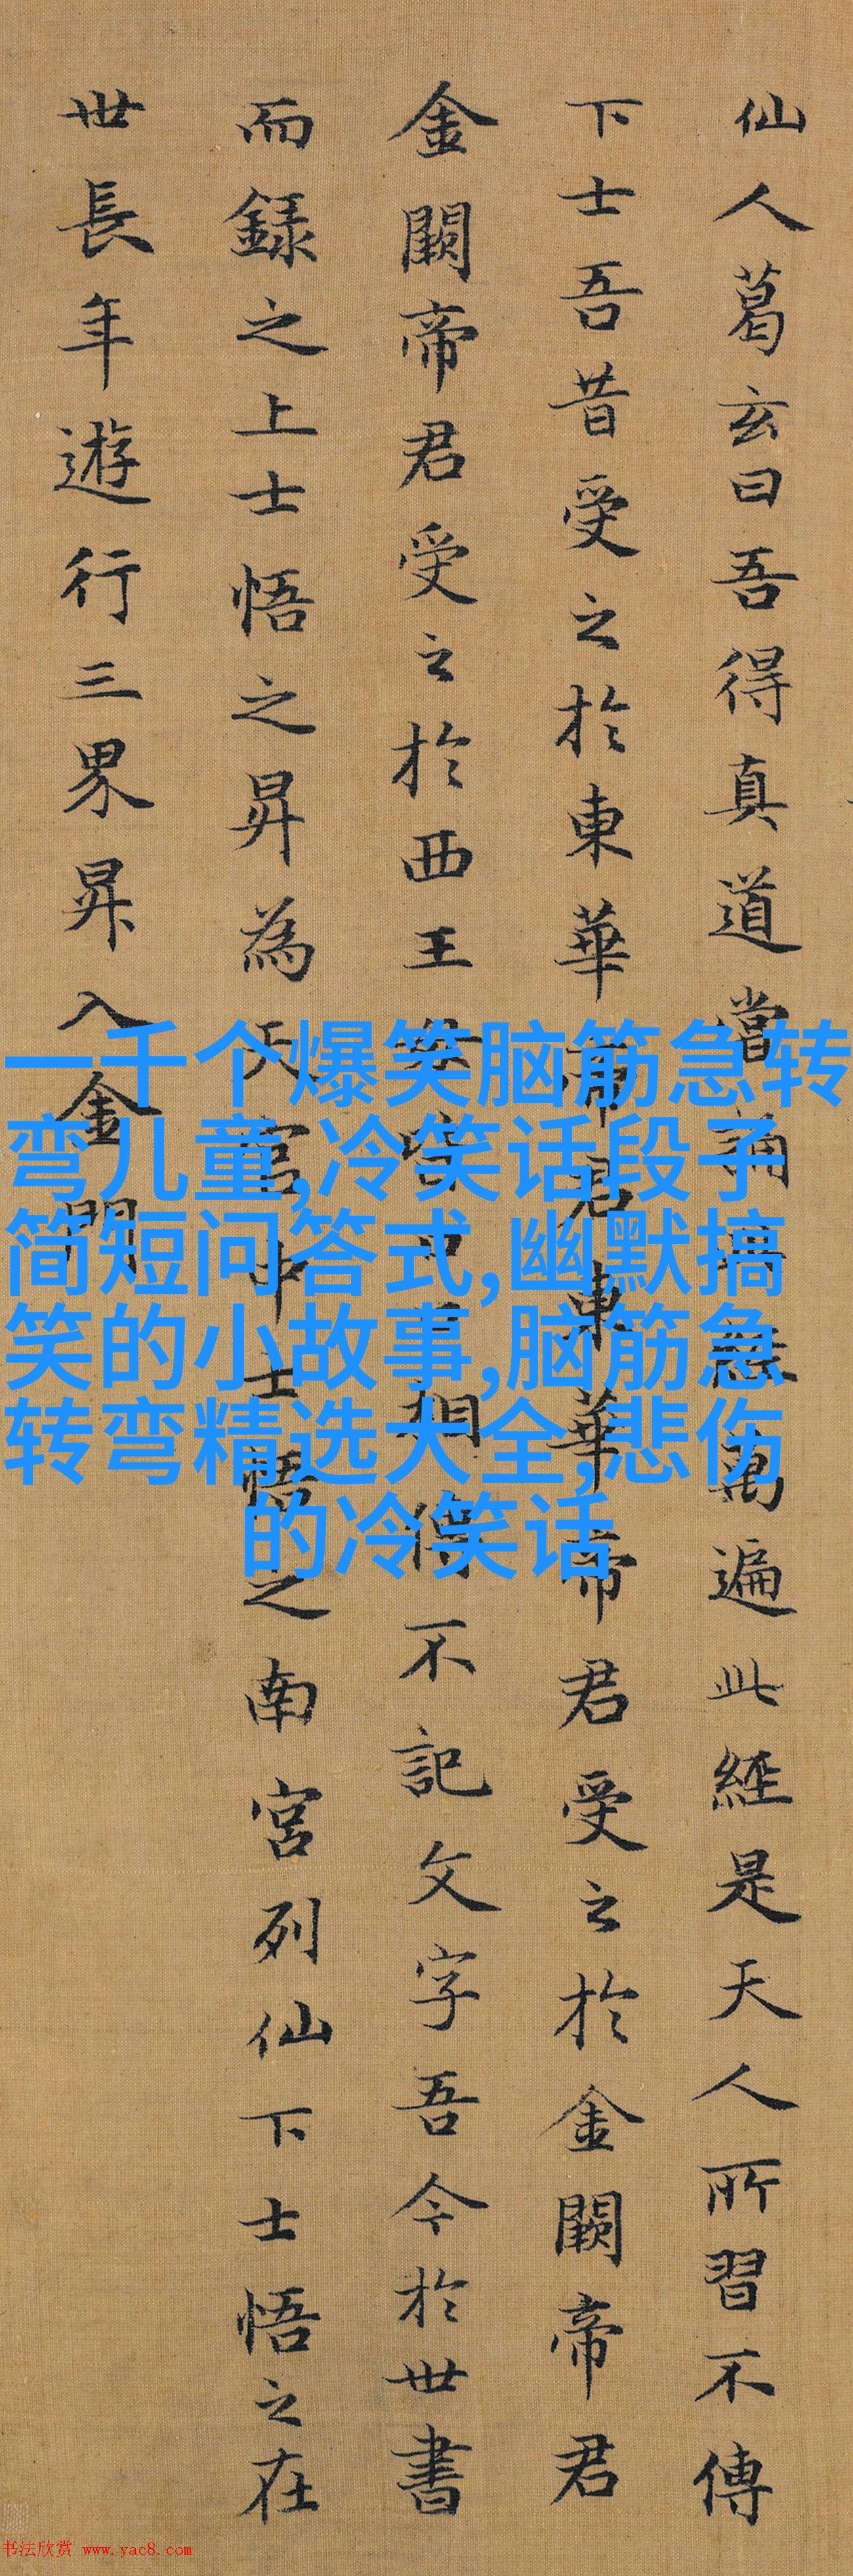 仙人葛玄曰吾得真道當誦此經萬遍此經是天人所習不傳
下士吾昔受之於東華帝君東華帝君受之於金闕帝君
金闕帝君受之於西王母皆口口相傳不記文字吾今於世書
而録之上士悟之昇為天官中士悟之南宮列仙下士悟之在
世長年遊行三界昇入金門
一千个爆笑脑筋急转
弯儿童,冷笑话段子
简短问答式,幽默搞
笑的小故事,脑筋急
转弯精选大全,悲伤
的冷笑话
书法欣赏 www.yac8.com